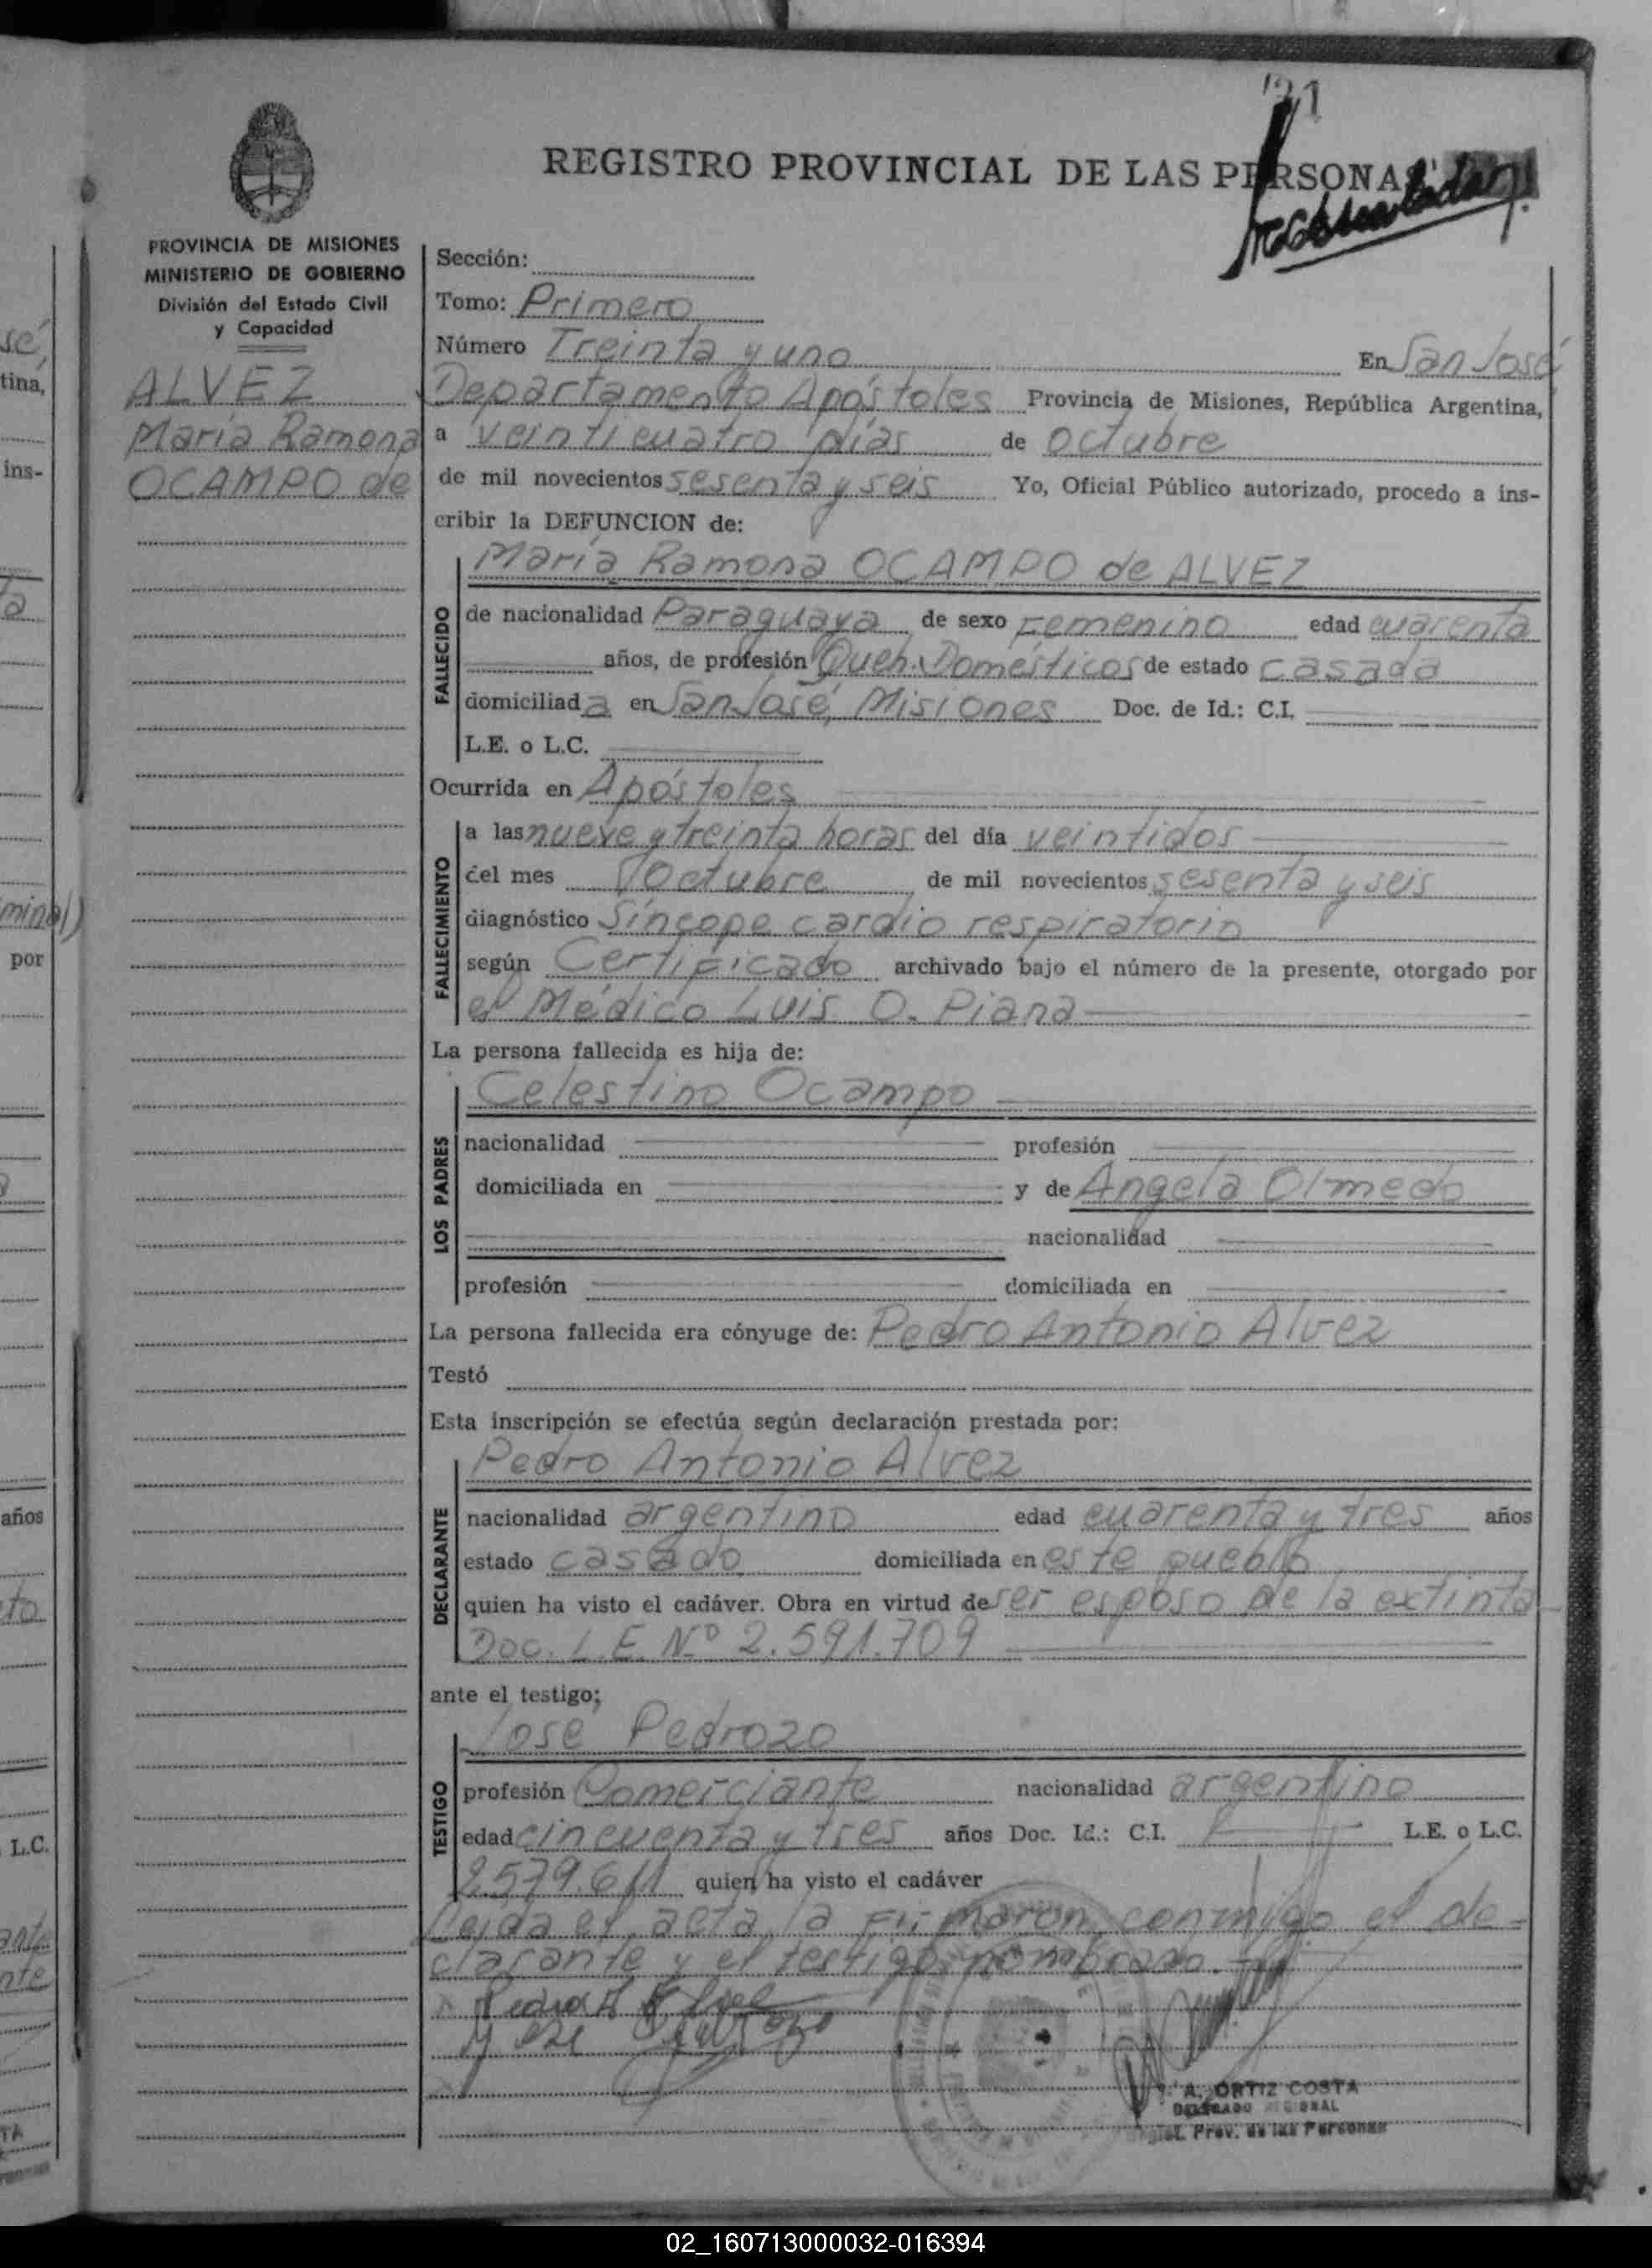 REGISTRO PROVINCIAL DE LAS PERSONAS
PROVINCIA DE MISIONES
MINISTERIO DE GOBIERNO
División del Estado Civil
y Capacidad
ALVEZ
María Ramona
OCAMPO de
Sección:
Tomo: Primero
Número Treinta y uno En San José
Departamento Apóstoles Provincia de Misiones, República Argentina,
a veinticuatro días de octubre
de mil novecientos sesenta y seis Yo, Oficial Público autorizado, procedo a ins-
cribir la DEFUNCION de:
FALLECIDO
María Ramona OCAMPO de ALVEZ
de nacionalidad Paraguaya de sexo Femenino edad cuarenta
años, de profesión Queh. Domésticos de estado casada
domiciliada en San José, Misiones Doc. de Id.: C.I.
L.E. o L.C.
Ocurrida en Apóstoles
FALLECIMIENTO
a las nueve y treinta horas del día veintidos
del mes Octubre de mil novecientos sesenta y seis
diagnóstico Síncope cardio respiratorio
según Certificado archivado bajo el número de la presente, otorgado por
el Médico Luis O. Piana
La persona fallecida es hija de:
LOS PADRES
Celestino Ocampo
nacionalidad profesión
domiciliada en y de Angela Olmedo
nacionalidad
profesión domiciliada en
La persona fallecida era cónyuge de: Pedro Antonio Alvez
Testó
Esta inscripción se efectúa según declaración prestada por:
DECLARANTE
Pedro Antonio Alvez
nacionalidad argentino edad cuarenta y tres años
estado casado domiciliada en este pueblo
quien ha visto el cadáver. Obra en virtud de ser esposo de la extinta
Doc. L.E. Nº 2.591.709
ante el testigo;
TESTIGO
José Pedrozo
profesión Comerciante nacionalidad argentino
edad cincuenta y tres años Doc. Id.: C.I. L.E. o L.C.
2.579.611 quien ha visto el cadáver
Leída el acta, la firmaron conmigo el de-
clarante y el testigo nombrado.
A. ORTIZ COSTA
DELEGADO REGIONAL
Regist. Prov. de las Personas
02_160713000032-016394